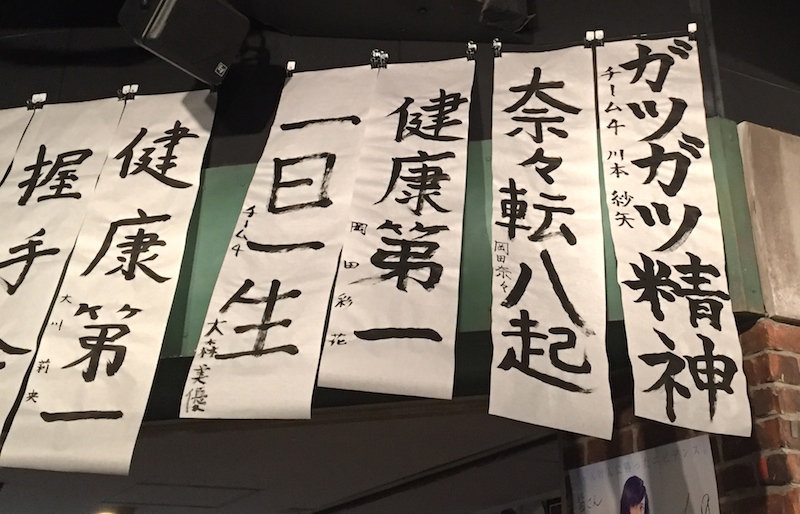 ガツガツ精神
チーム4 川本 紗矢
奈々転八起
岡田奈々
健康第一
岡田彩花
一日一生
チーム4
大森美優
健康第一
大川莉央
握手